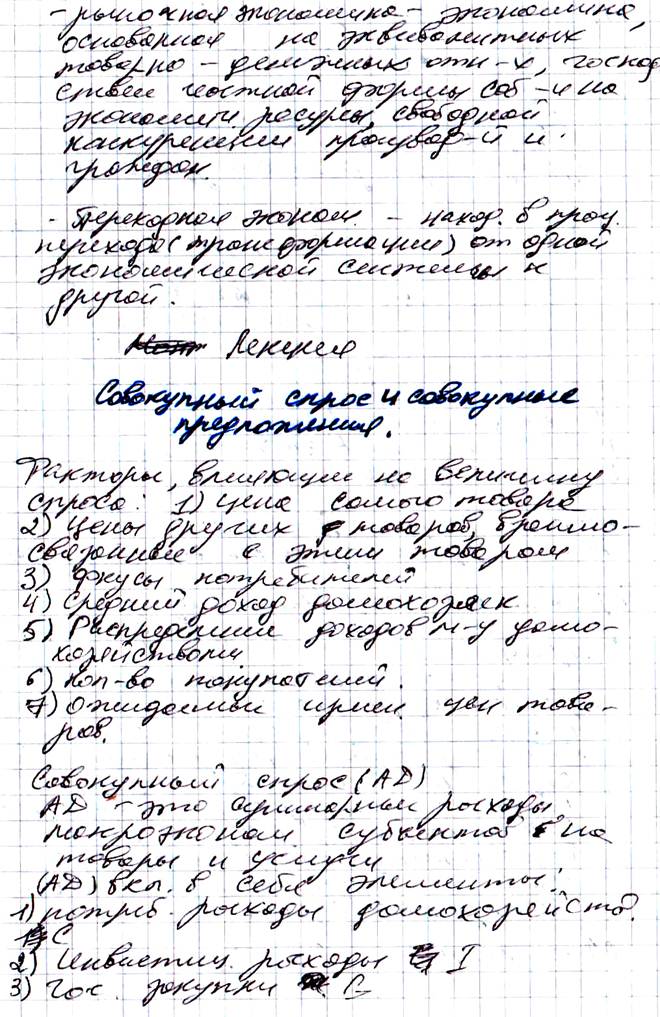 - рыночная экономика - экономика,
основанная на эквивалитных
товарно - денежных отн-х, господ
ствии частной формы соб-и на
экономич. ресурсы, свободной
конкуренции производ-й и
граждан.
- Переходная эконом. - наход. в проц.
перехода (трансформации) от одной
экономической системы к
другой.
Лекция
Совокупный спрос и совокупные
предложения.
Факторы, влияющие на величину
спроса: 1) цена самого товара
2) цены других товаров, взаимо-
связанные с этим товаром
3) вкусы потребителей
4) средний доход домохозяек
5) Распределение доходов м-у домо-
хозяйствами
6) кол-во покупателей.
7) Ожидаемые измен. цен това-
ров.
Совокупный спрос (AD)
AD - это суммарные расходы
макроэконом. субъектов на
товары и услуги
(AD) вкл. в себя элементы:
1) потреб. расходы домохозяйств.
C
2) Инвестиц. расходы I
3) Гос. закупки G